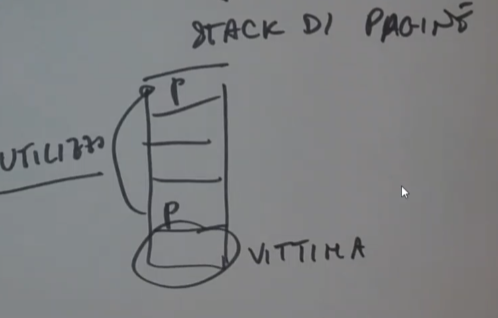 STACK DI PAGINE
P
UTILIZZO
P
VITTIMA